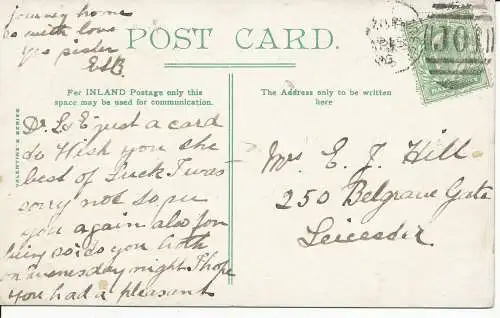 POST CARD.
For INLAND Postage only this
space may be used for communication.
The Address only to be written
here
VALENTINE'S SERIES
Dr L & E just a card
to Wish you the
best of Luck I was
sorry not to see
you again also for
being so
you both
on wenesday night I hope
you had a pleasant
journey home
so with love
yr sister
Mrs E. J. Hill
250 Belgrave Gate
Leicester
J01